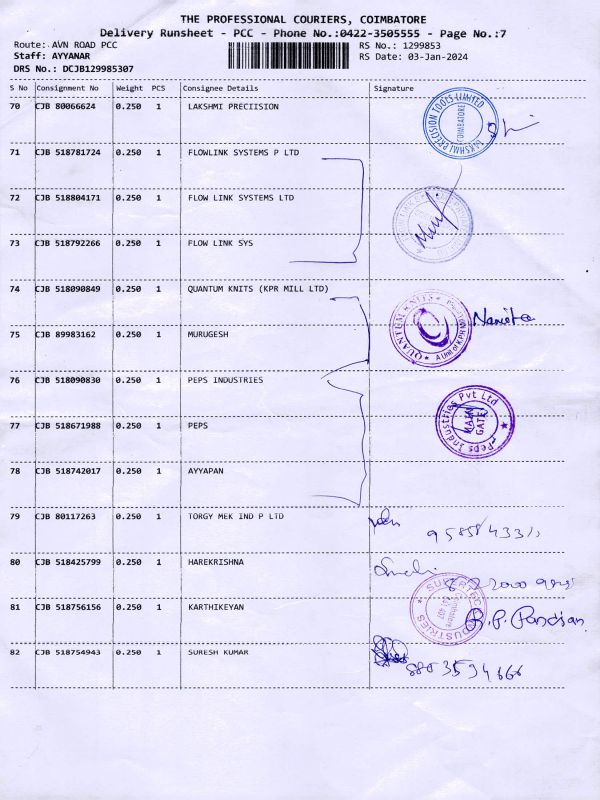 THE PROFESSIONAL COURIERS, COIMBATORE
Delivery Runsheet - PCC - Phone No.:0422-3505555 - Page No.:7
Route: AVN ROAD PCC RS No.: 1299853
Staff: AYYANAR RS Date: 03-Jan-2024
DRS No.: DCJB129985307
S No Consignment No Weight PCS Consignee Details Signature
70 CJB 80066624 0.250 1 LAKSHMI PRECIISION
LAKSHMI PRECISION TOOLS LIMITED COIMBATORE
71 CJB 518781724 0.250 1 FLOWLINK SYSTEMS P LTD
72 CJB 518804171 0.250 1 FLOW LINK SYSTEMS LTD
73 CJB 518792266 0.250 1 FLOW LINK SYS
74 CJB 518090849 0.250 1 QUANTUM KNITS (KPR MILL LTD)
QUANTUM KNITS
75 CJB 89983162 0.250 1 MURUGESH
76 CJB 518090830 0.250 1 PEPS INDUSTRIES
Peps Industries Pvt Ltd MAIN GATE
77 CJB 518671988 0.250 1 PEPS
78 CJB 518742017 0.250 1 AYYAPAN
79 CJB 80117263 0.250 1 TORGY MEK IND P LTD
80 CJB 518425799 0.250 1 HAREKRISHNA
81 CJB 518756156 0.250 1 KARTHIKEYAN
INDUSTRIES
R.P. Pandian
82 CJB 518754943 0.250 1 SURESH KUMAR